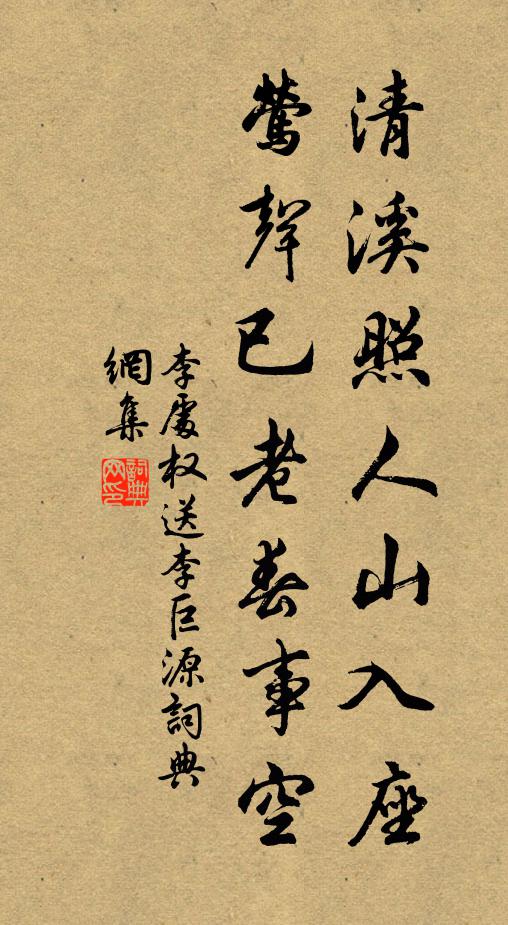 清溪照人山入座
鶯聲已老春事空
李處權送李巨源詞典
網集
詞典
网印